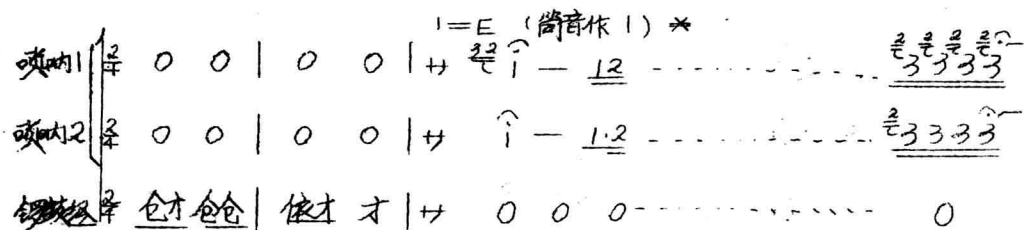 1=E （筒音作1）*
唢呐1 2/4 0 0 | 0 0 | サ 32 i — 12 ………… 2 2 2 2 3 3 3 3
唢呐2 2/4 0 0 | 0 0 | サ i — 1·2 ………… 2 3 3 3 3
锣鼓经 2/4 仓才 仓仓 | 依才 才 | サ 0 0 0 ………… 0